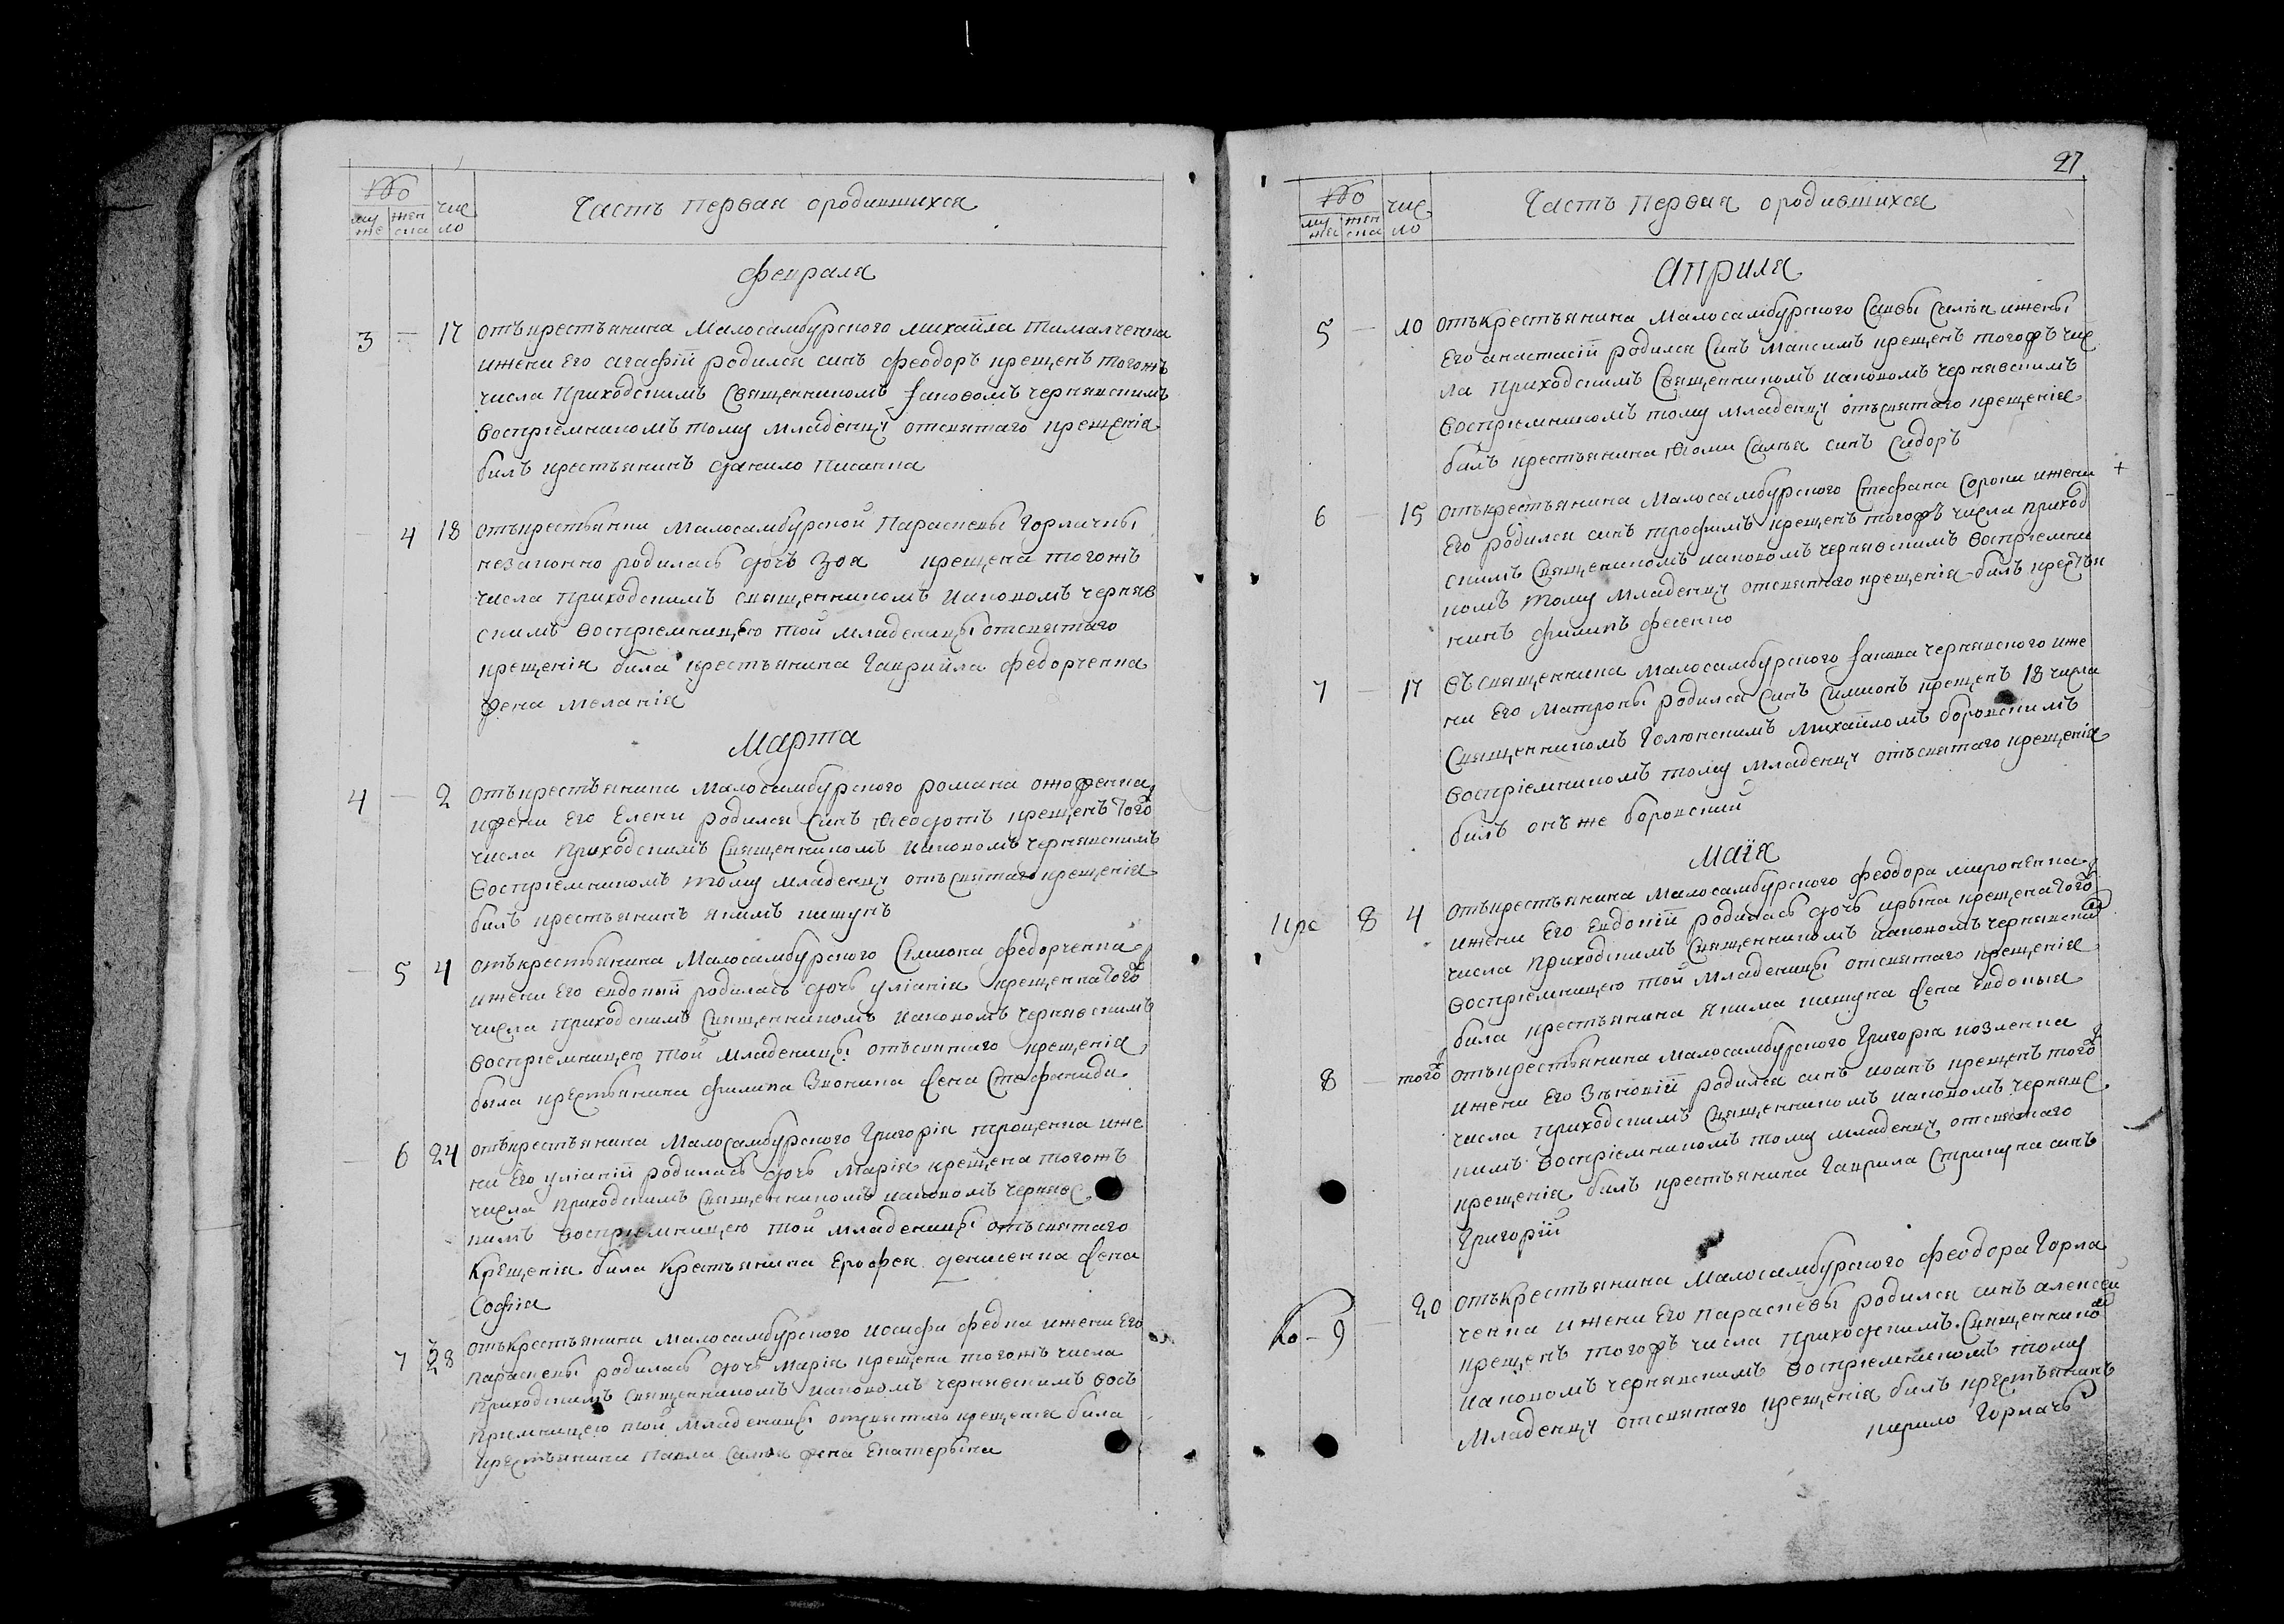 №
му же
жен ска
чис ло
Часть первая ородившихся
Февраля
3 — 17 отъкрестъянина Малосамбурского михайла тималченка
ижени Его агафiй родился синъ феодоръ крещенъ тогожъ
числа Приходскимъ Священникомъ Iаковомъ чернявскимъ
воспрiемникомъ тому младенцу отсвятаго крещенiя
билъ крестьянинъ данило Писанка
— 4 18 отъкрестьянки Малосамбурской Параскевы Горлачны
незаконно родилась дочь Зоя крещена тогожъ
числа Приходскимъ священникомъ Иаковомъ черняв
скимъ воспрiемницею той младеницы отсвятаго
крещенiя била крестъянина Гаврийла федорченка
жена меланiя
Марта
4 — 2 отъкрестъянина Малосамбурского романа
ижени Его Елени родился Синъ Ѳеодотъ крещенъ того
числа Приходскимъ Священникомъ Иаковомъ чернявскимъ
воспрiемникомъ тому младенцу отъсвятаго крещенiя
билъ крестъянинъ якимъ кишунъ
— 5 4 отъкрестьянина Малосамбурского Симиона федорченка
ижени Его евдокий родилась дочь улiанiя крещенна того
числа приходскимъ Священникомъ Иаковомъ чернявскимъ
воспрiемницею той Младеницы отъсвятаго крещенiя
была крестьянина филипа жена Стефанида
— 6 24 отъкрестъянина Малосамбурского Григорiя трощенка иже
ни Его улiанiй родилась дочь Марiя крещена тогожъ
числа Приходскимъ Священникомъ иаковомъ чернявс
кимъ воспрiемницею той младеницы отъсвятаго
Крещенiя била Крестьянина Ерофея денисенка жена
Софiя
7 28 отъкрестъянина Малосамбурского Иосифа федка ижени Его
параскевы родилась дочь Марiя крещена тогожъ числа
приходскимъ священникомъ иаковомъ чернявскимъ вось
приемницею той младеницы отсвятаго крещенiя била
крестъянина Павла Салия жена Екатерына
27
№
му жес
жен ска
чис ло
Часть Первая ородившихся
Априля
5 — 10 отъкрестьянина Малосамбурского Савы Салѣя ижены
Его анастасiй родился Синъ Максимъ крещенъ тогожъ чис
ла Приходскимъ Священникомъ иаковомъ чернявскимъ
воспрiемникомъ тому Младенцу отъсвятаго крещенiя
билъ крестьянина Ѳомы Салѣя синъ Сидоръ
6 — 15 Отъкрестъянина Малосамбурского Стефана Сороки ижени +
Его родился синъ трофимъ крещенъ тогожъ числа Приход
скимъ Священикомъ иаковомъ чернявскимъ воспрiемни
комъ тому Младенцу отсвятаго крещенiя билъ крестья
нинъ филипъ фесенко
7 — 17 въсвященника Малосамбурского Iакова чернявского иже
ни Его Матроны родился Синъ Симионъ крещенъ 18 числа
Священникомъ Голюнскимъ Михайломъ боровскимъ
воспрiемникомъ тому Младенцу отъсвятаго крещенiя
билъ онъже боровский
Маiя
8 4 отъкрестъянина Малосамбурского феодора мироненка
ижени Его Евдокiй родилась дочь ирына крещена того
числа Приходскимъ Священникомъ иаковомъ чернявским
воспрiемницею той Младеницы отсвятаго крещенiя
била крестъянина Якима кишуна жена Евдокыя
8 — того отъкрестьянина Малосамбурского Григорiя козленка
ижени Его Зѣновiй родился синъ иоанъ крещенъ того
числа Приходскимъ Священникомъ иаковомъ чернявс
кимъ воспрiемникомъ тому младенцу отсвятаго
крещенiя билъ крестьянина Гаврила Стрикуна синъ
Григорiй
9 — 20 отъкрестьянина Малосамбурского феодора Горла
ченка ижени Его Параскевы родился синъ алексей
крещенъ тогожъ числа Приходскимъ Священнико
иаковомъ чернявскимъ воспрiемникомъ тому
Младенцу отсвятаго крещенiя билъ крестъянинъ
кирило Горлачъ